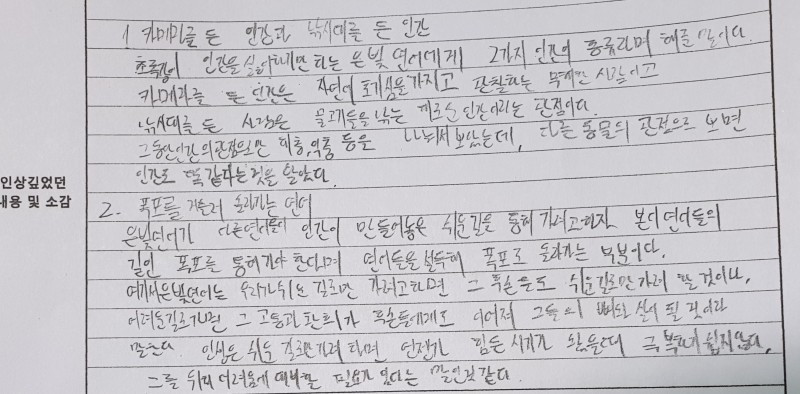 1. 카메라를 든 인간과 낚시대를 든 인간
초록강이 인간을 싫어하기만 하는 은빛 연어에게 2가지 인간의 종류라며 해준 말이다.
카메라를 든 인간은 자연에 호기심을 가지고 관찰하는 사람이고
낚시대를 든 사람은 물고기들을 낚는 해로운 인간이라는 관점이다.
그동안 인간의 관점으로만 해충, 익충 등을 나눠서 보았는데, 다른 동물의 관점으로 보면
인간도 똑같다는 것을 알았다.
인상깊었던
내용 및 소감
2. 폭포를 거슬러 올라가는 연어
은빛연어가 다른연어들이 인간이 만들어놓은 쉬운길을 통해 가려고하자 본디 연어들의
길인 폭포를 통해가야 한다며 연어들을 설득해 폭포로 올라가는 부분이다.
여기서 은빛연어는 우리가 쉬운 길로만 가려고하면 그 후손들도 쉬운길로만 가려 할 것이나,
어려운길로가면 그 고통과 환희가 후손들에게도 이어져 그들의 뼈와 살이 될 것이라
말한다. 인생은 쉬운 길로만 가려 하면 언젠가 힘든 시기가 왔을때 극복하기 쉽지않다,
그를 위해 어려움에 대비할 필요가 있다는 말인것 같다.